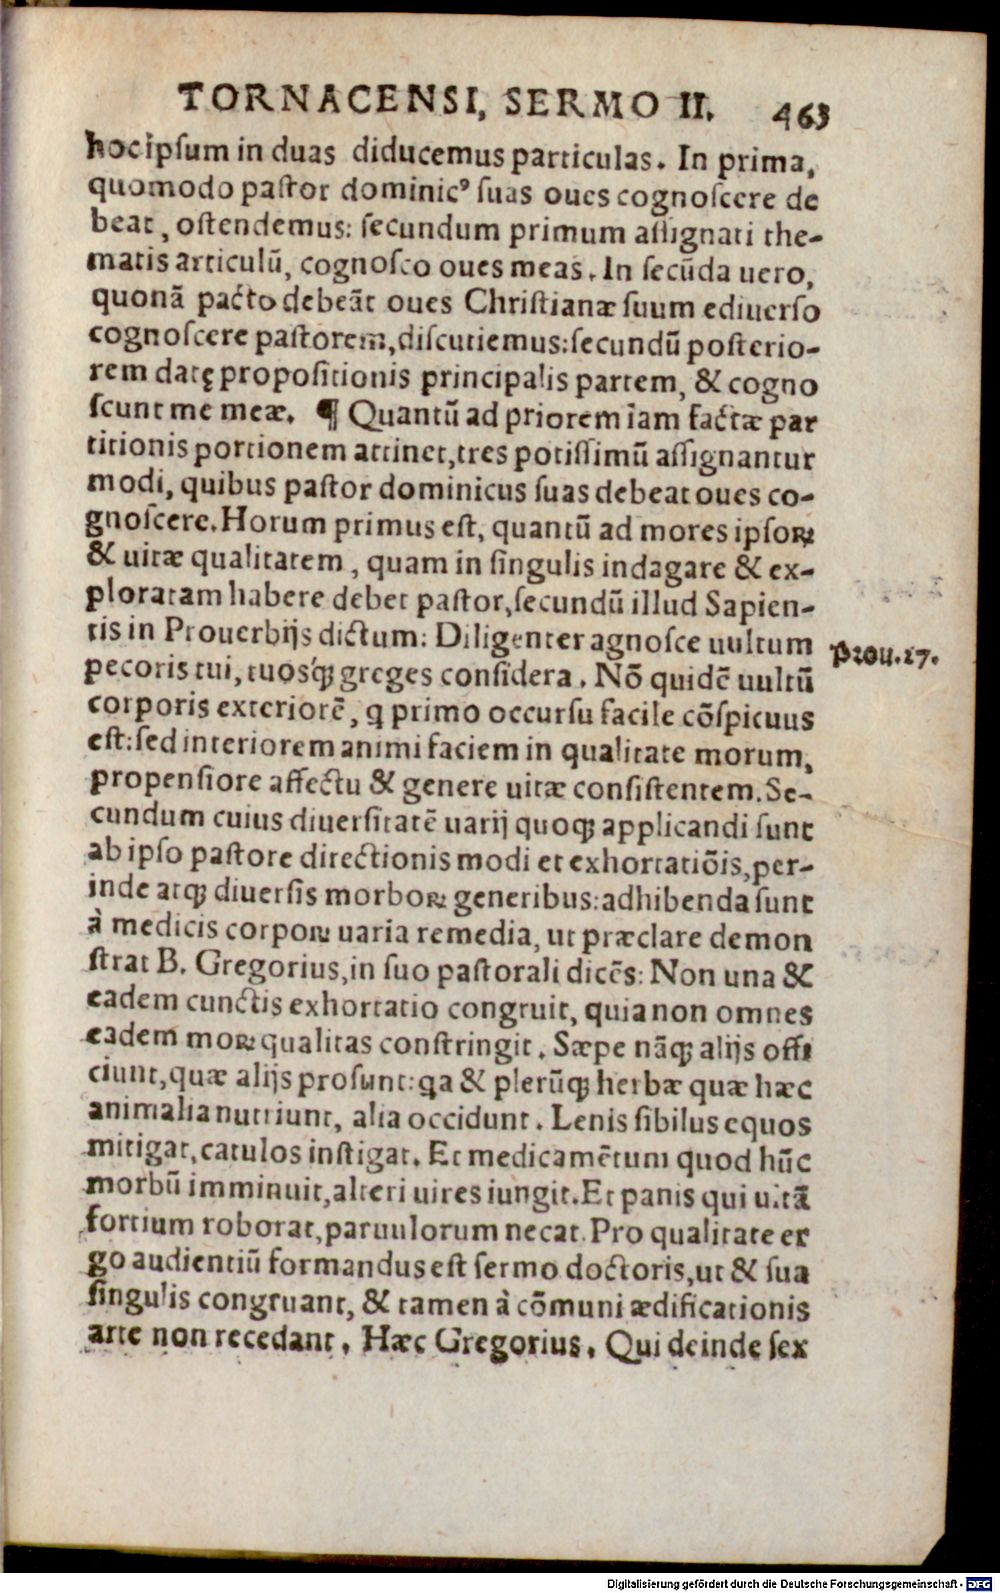 TORNACENSI, SERMO II. 463
hoc ipſum in duas diducemus particulas. In prima,
quomodo paſtor dominicꝰ ſuas oues cognoſcere de
beat, oſtendemus: ſecundum primum aſſignati the-
matis articulū, cognoſco oues meas. In ſecūda uero,
quonā pacto debeāt oues Chriſtianæ ſuum ediuerſo
cognoſcere paſtorem, diſcutiemus: ſecundū poſterio-
rem datę propoſitionis principalis partem, & cogno
ſcunt me meæ. ¶ Quantū ad priorem iam factæ par
titionis portionem attinet, tres potiſſimū aſſignantur
modi, quibus paſtor dominicus ſuas debeat oues co-
gnoſcere. Horum primus eſt, quantū ad mores ipſoꝝ
& uitæ qualitatem, quam in ſingulis indagare & ex-
ploratam habere debet paſtor, ſecundū illud Sapien-
tis in Prouerbijs dictum: Diligenter agnoſce uultum
Prou. 27.
pecoris tui, tuosq́ꝫ greges conſidera. Nō quidē uultū
corporis exteriorē, q primo occurſu facile cōſpicuus
eſt: ſed interiorem animi faciem in qualitate morum,
propenſiore affectu & genere uitæ conſiſtentem. Se-
cundum cuius diuerſitatē uarij quoqꝫ applicandi ſunt
ab ipſo paſtore directionis modi et exhortatiōis, per-
inde atqꝫ diuerſis morboꝝ generibus: adhibenda ſunt
à medicis corpoꝝ uaria remedia, ut præclare demon
ſtrat B. Gregorius, in ſuo paſtorali dicēs: Non una &
eadem cunctis exhortatio congruit, quia non omnes
eadem moꝝ qualitas conſtringit. Sæpe nāqꝫ alijs offi
ciunt, quæ alijs proſunt: qa & plerūqꝫ herbæ quæ hæc
animalia nutriunt, alia occidunt. Lenis ſibilus equos
mitigat, catulos inſtigat. Et medicamētum quod hūc
morbū imminuit, alteri uires iungit. Et panis qui uitā
fortium roborat, paruulorum necat. Pro qualitate er
go audientiū formandus eſt ſermo doctoris, ut & ſua
ſingulis congruant, & tamen à cōmuni ædificationis
arte non recedant. Hæc Gregorius. Qui deinde ſex
Digitalisierung gefördert durch die Deutsche Forschungsgemeinschaft - DFG